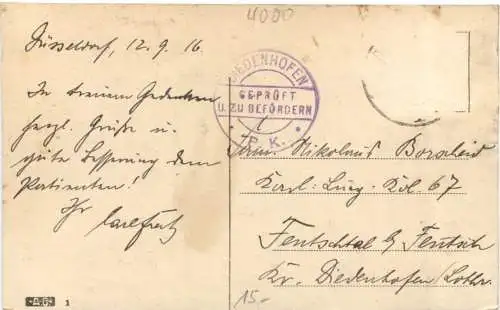 4000
Düsseldorf, 12.9.16
In treuem Gedenken
herzl. Grüße u.
gute Besserung dem
Patienten!
Ihr
DIEDENHOFEN
GEPRÜFT
U. ZU BEFÖRDERN
P. K.
Nikolaus Borscheid
Karl-Lueg-Kol 67
Fentschtal b/ Fentsch
Kr. Diedenhofen/Lothr.
15.-
A.G. 1